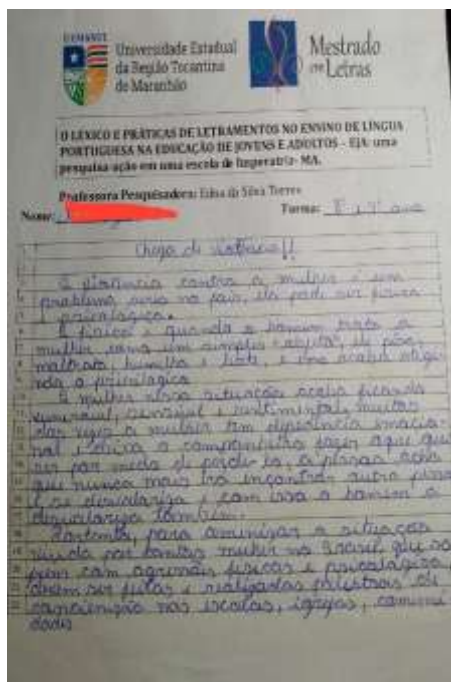 UEMASUL
Universidade Estadual
da Região Tocantina
do Maranhão
Mestrado
em Letras
O LÉXICO E PRÁTICAS DE LETRAMENTOS NO ENSINO DE LÍNGUA
PORTUGUESA NA EDUCAÇÃO DE JOVENS E ADULTOS - EJA: uma
pesquisa-ação em uma escola de Imperatriz- MA.
Professora Pesquisadora: da Silva Torres
Nome:
Turma: 8 e 9º ano
Chega de violência!!
A violência contra a mulher é um
problema serio no país, ela pode ser fisica
e psicologica.
A fisica é quando o homem trata a
mulher como um simples objeto, ele
maltrata, humilha e bate, e isso acaba atigin
do a psicologica
A mulher nessa situação acaba ficando
sensivel e sentimental, muitas
das vezes a mulher tem dependencia emocio
nal e deixa o companheiro fazer oque qui
ser por medo de perde-lo, a pessoa acha
que nunca mais irá encontrar outra pessoa
e se desvaloriza e com isso o homem a
desvaloriza também.
Portanto, para amenizar a situação
vivida por tantas mulher no Brasil que so
frem com agressões fisicas e psicologica,
devem ser feitas e realizadas palestras de
nas escolas, igrejas, comuni
dades